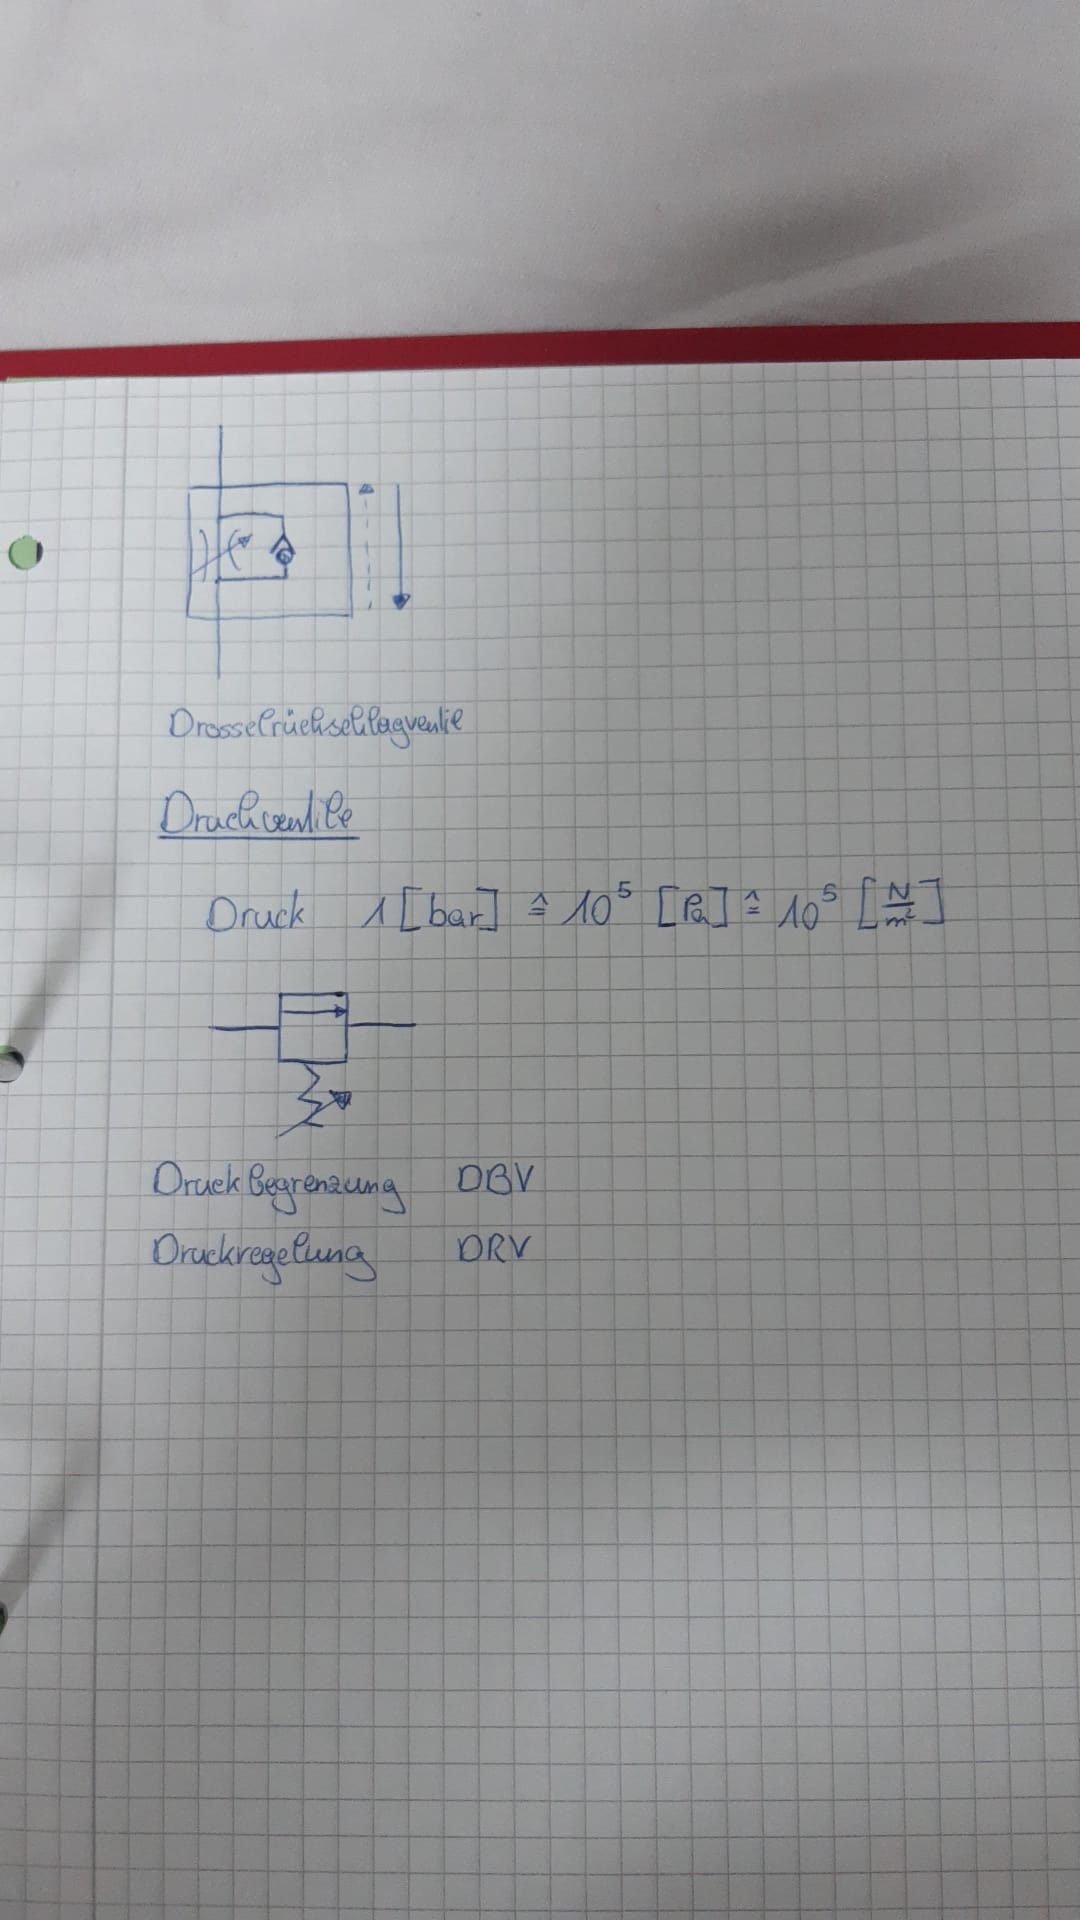 Drosselrückschlagventil
Druckventile
Druck 1 [bar] ≙ 10⁵ [Pa] ≙ 10⁵ [N/m²]
Druckbegrenzung DBV
Druckregelung DRV